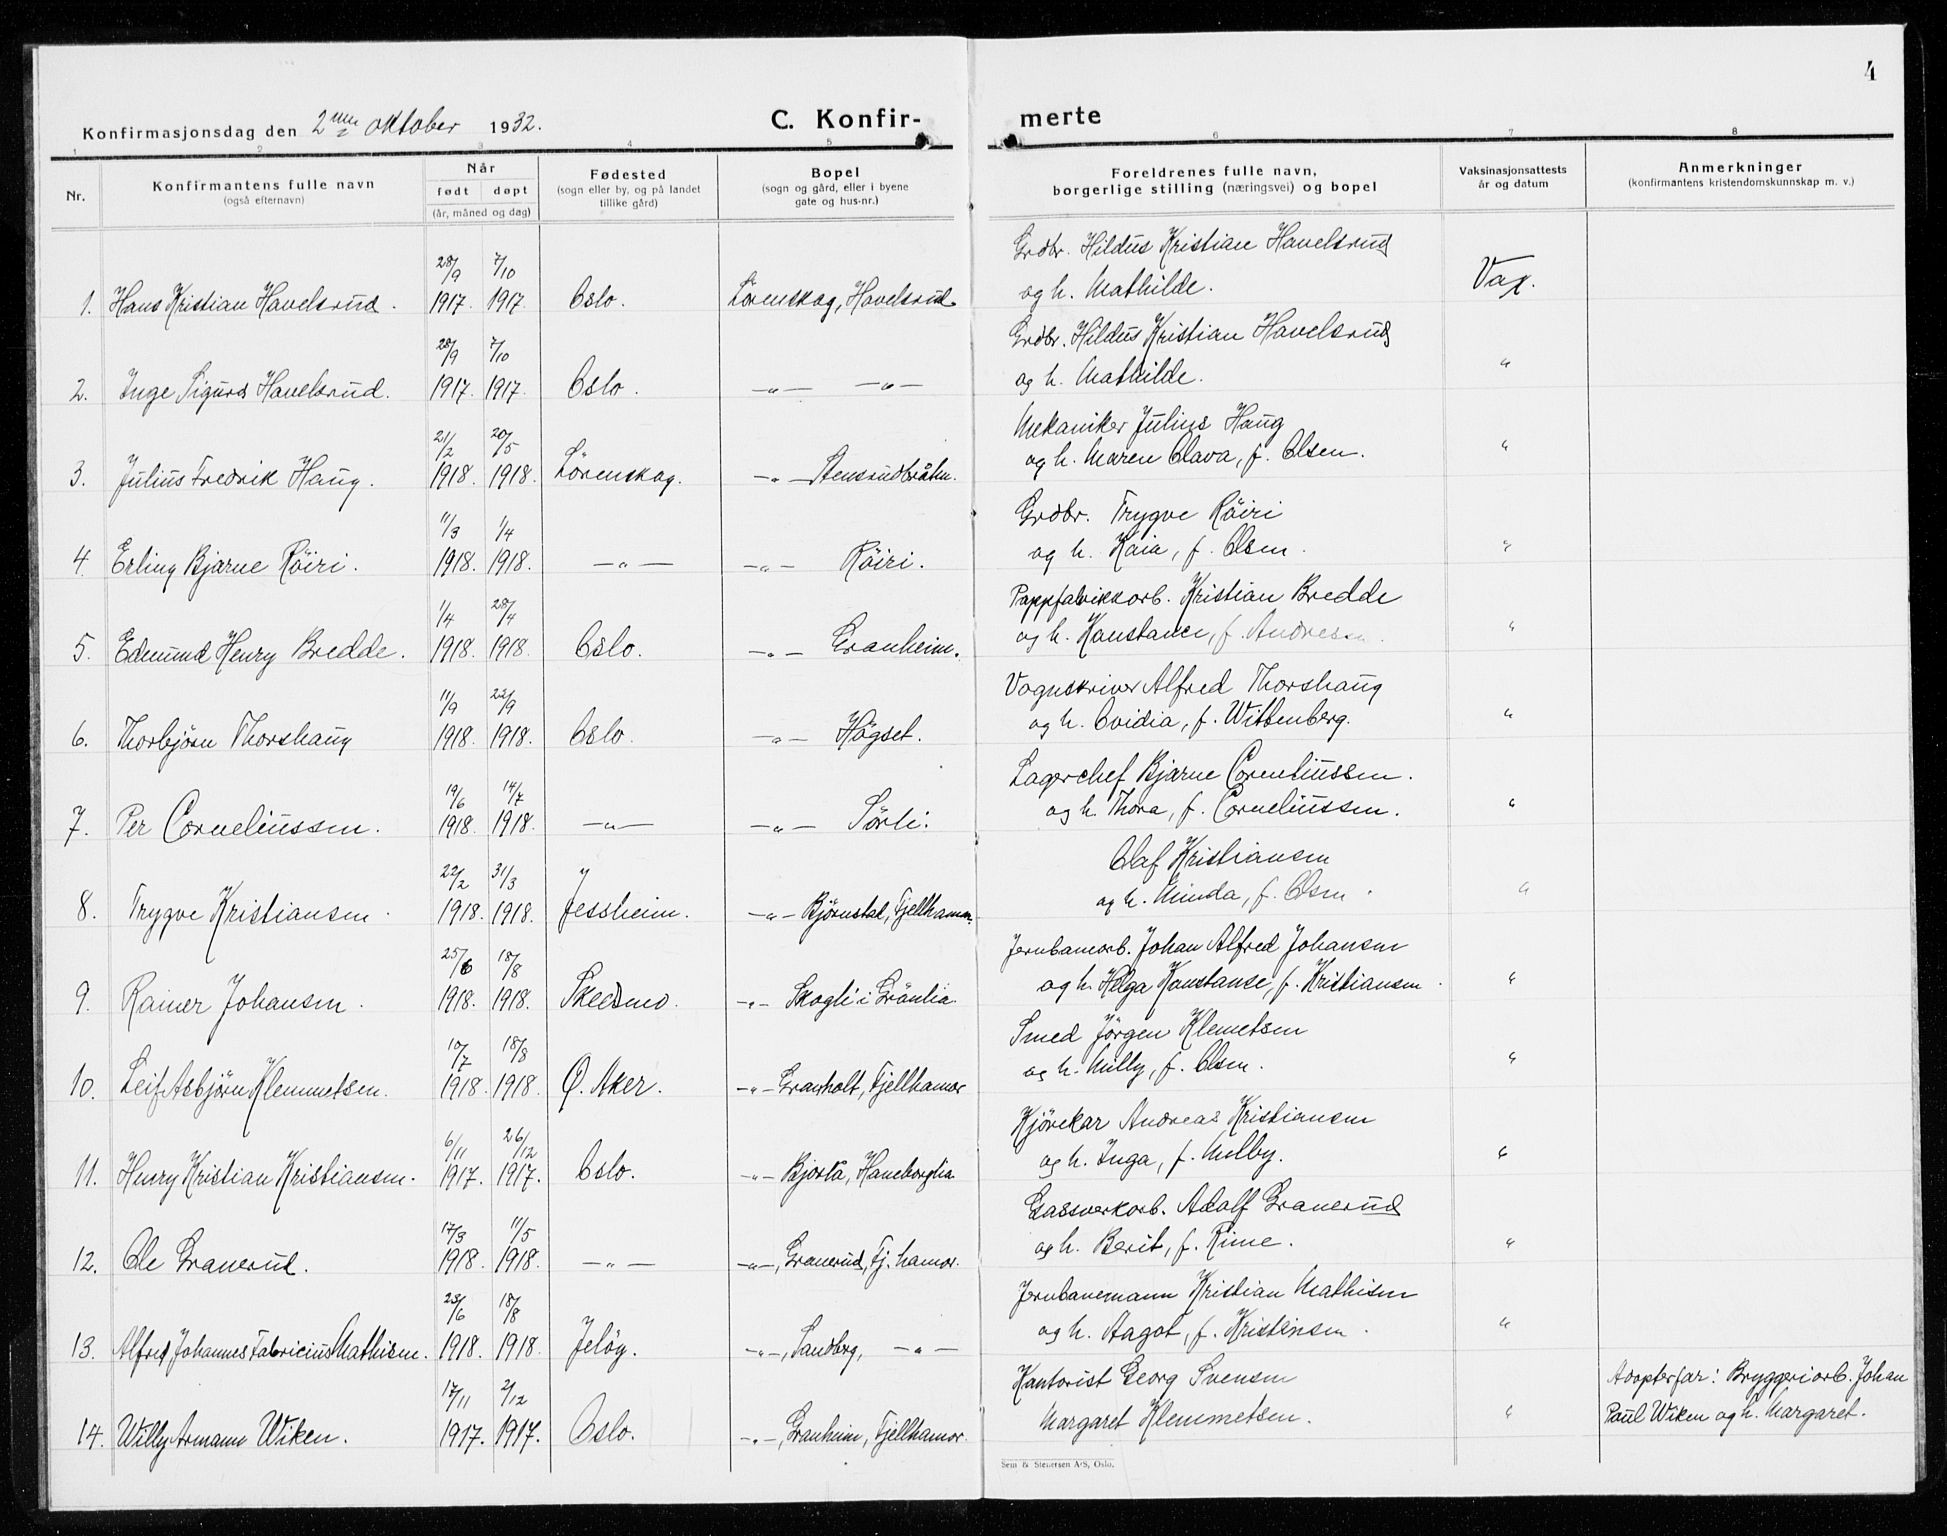 4
Konfirmasjonsdag den 2nen oktober 1932.
C. Konfir-
merte
1 2 3 4 5 6 7 8
Nr.
Konfirmantens fulle navn
(også efternavn)
Når
født døpt
(år, måned og dag)
Fødested
(sogn eller by, og på landet
tillike gård)
Bopel
(sogn og gård, eller i byene
gate og hus-nr.)
Foreldrenes fulle navn,
borgerlige stilling (næringsvei) og bopel
Vaksinasjonsattests
år og datum
Anmerkninger
(konfirmantens kristendomskunnskap m. v.)
28/9 7/10 Grdbr. Hildus Kristian Havelsrud
1. Hans Kristian Havelsrud. 1917. 1917. Oslo. Lörenskog, Havelsrud. og h. Mathilde. Vax.
28/9 7/10 Grdbr. Hildus Kristian Havelsrud
2. Inge Sigurd Havelsrud. 1917. 1917. Oslo. —"— —"— og h. Mathilde. "
21/2 20/5 Mekaniker Julius Haug
3. Julius Fredrik Haug. 1918. 1918. Lörenskog. —"— Stensrudbråten. og h. Maren Olava, f. Olsen. "
11/3 1/4 Grdbr. Trygve Röiri
4. Erling Bjarne Röiri. 1918. 1918. —"— —"— Röiri. og h. Kaia, f. Olsen. "
1/4 28/4 Pappfabrikkarb. Kristian Bredde
5. Edmund Henry Bredde. 1918. 1918. Oslo. —"— Granheim. og h. Konstance, f. Andresen. "
11/9 22/9 Vognskriver Alfred Thorshaug
6. Thorbjörn Thorshaug 1918. 1918. Oslo. —"— Högset. og h. Ovidia, f. Wittenberg. "
19/6 14/7 Lagerchef Bjarne Corneliussen.
7. Per Corneliussen. 1918. 1918. —"— —"— Sörli. og h. Thora, f. Corneliussen. "
22/2 31/3 Olaf Kristiansen
8. Trygve Kristiansen. 1918. 1918. Jessheim. —"— Bjørnstal, Fjellhamar. og h. Minda, f. Olsen. "
25/6 18/8 Jernbanearb. Johan Alfred Johansen
9. Rainer Johansen. 1918. 1918. Skedsmo. —"— Skogli i Grönlia. og h. Helga Konstanse, f. Kristiansen. "
10/7 18/8 Smed Jörgen Klemetsen
10. Leif Asbjörn Klemmetsen. 1918. 1918. Ø. Aker. —"— Granholt, Fjellhamar og h. Milly, f. Olsen. "
6/11 26/12 Kjörekar Andreas Kristiansen
11. Henry Kristian Kristiansen. 1917. 1917. Oslo. —"— Haneborglia og h. Inga, f. Melby. "
17/3 11/5 Gassverkarb. Adolf Granerud
12. Ole Granerud. 1918. 1918. —"— —"—, Granerud, Fj. hamar. og h. Berit, f. Rime. "
23/6 18/8 Jernbanemann Kristian Mathisen
13. Alfred Johannes Fabricius Mathisen. 1918. 1918. Jelöy. —"—, Sandberg, —"— og h. Aagot, f. Kristensen. "
17/11 2/12 Kontorist Georg Svensen Adopterfar: Bryggeriarb. Johan
14. Willy Armann Wiken. 1917. 1917. Oslo. —"—, Granheim, Fjellhamar. Margaret Klemmetsen. " Paul Wiken og h. Margaret.
Sem & Stenersen A/S, Oslo.